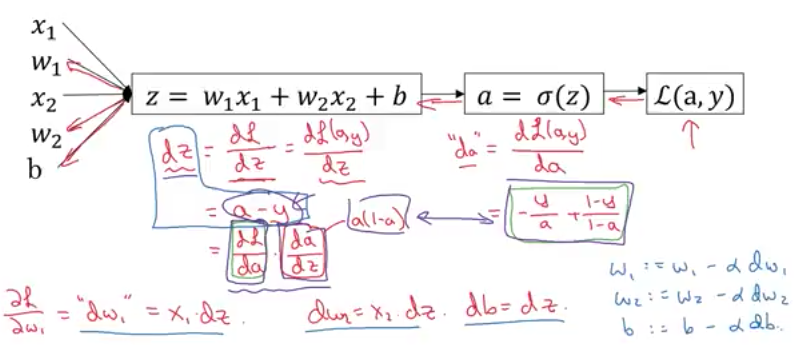 x₁
w₁
x₂
w₂
b
z = w₁x₁ + w₂x₂ + b
a = σ(z)
ℒ(a, y)
dz = dℒ/dz = dℒ(a,y)/dz
"da" = dℒ(a,y)/da
= a - y
= -y/a + (1-y)/(1-a)
= dℒ/da · da/dz
a(1-a)
∂ℒ/∂w₁ = "dw₁" = x₁·dz.
dw₂ = x₂·dz.
db = dz.
w₁ := w₁ - α dw₁
w₂ := w₂ - α dw₂
b := b - α db.